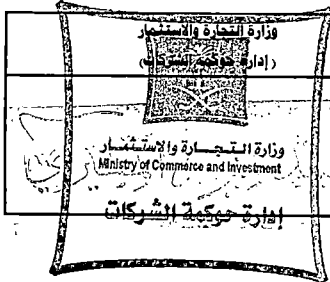 وزارة التجارة والاستثمار
( إدارة حوكمة الشركات)
وزارة التـجـــارة والاسـتـثـمــار
Ministry of Commerce and Investment
إدارة حوكمة الشركات